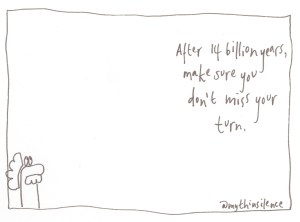 After 14 billion years,
make sure you
don't miss your
turn.
@mythinsilence